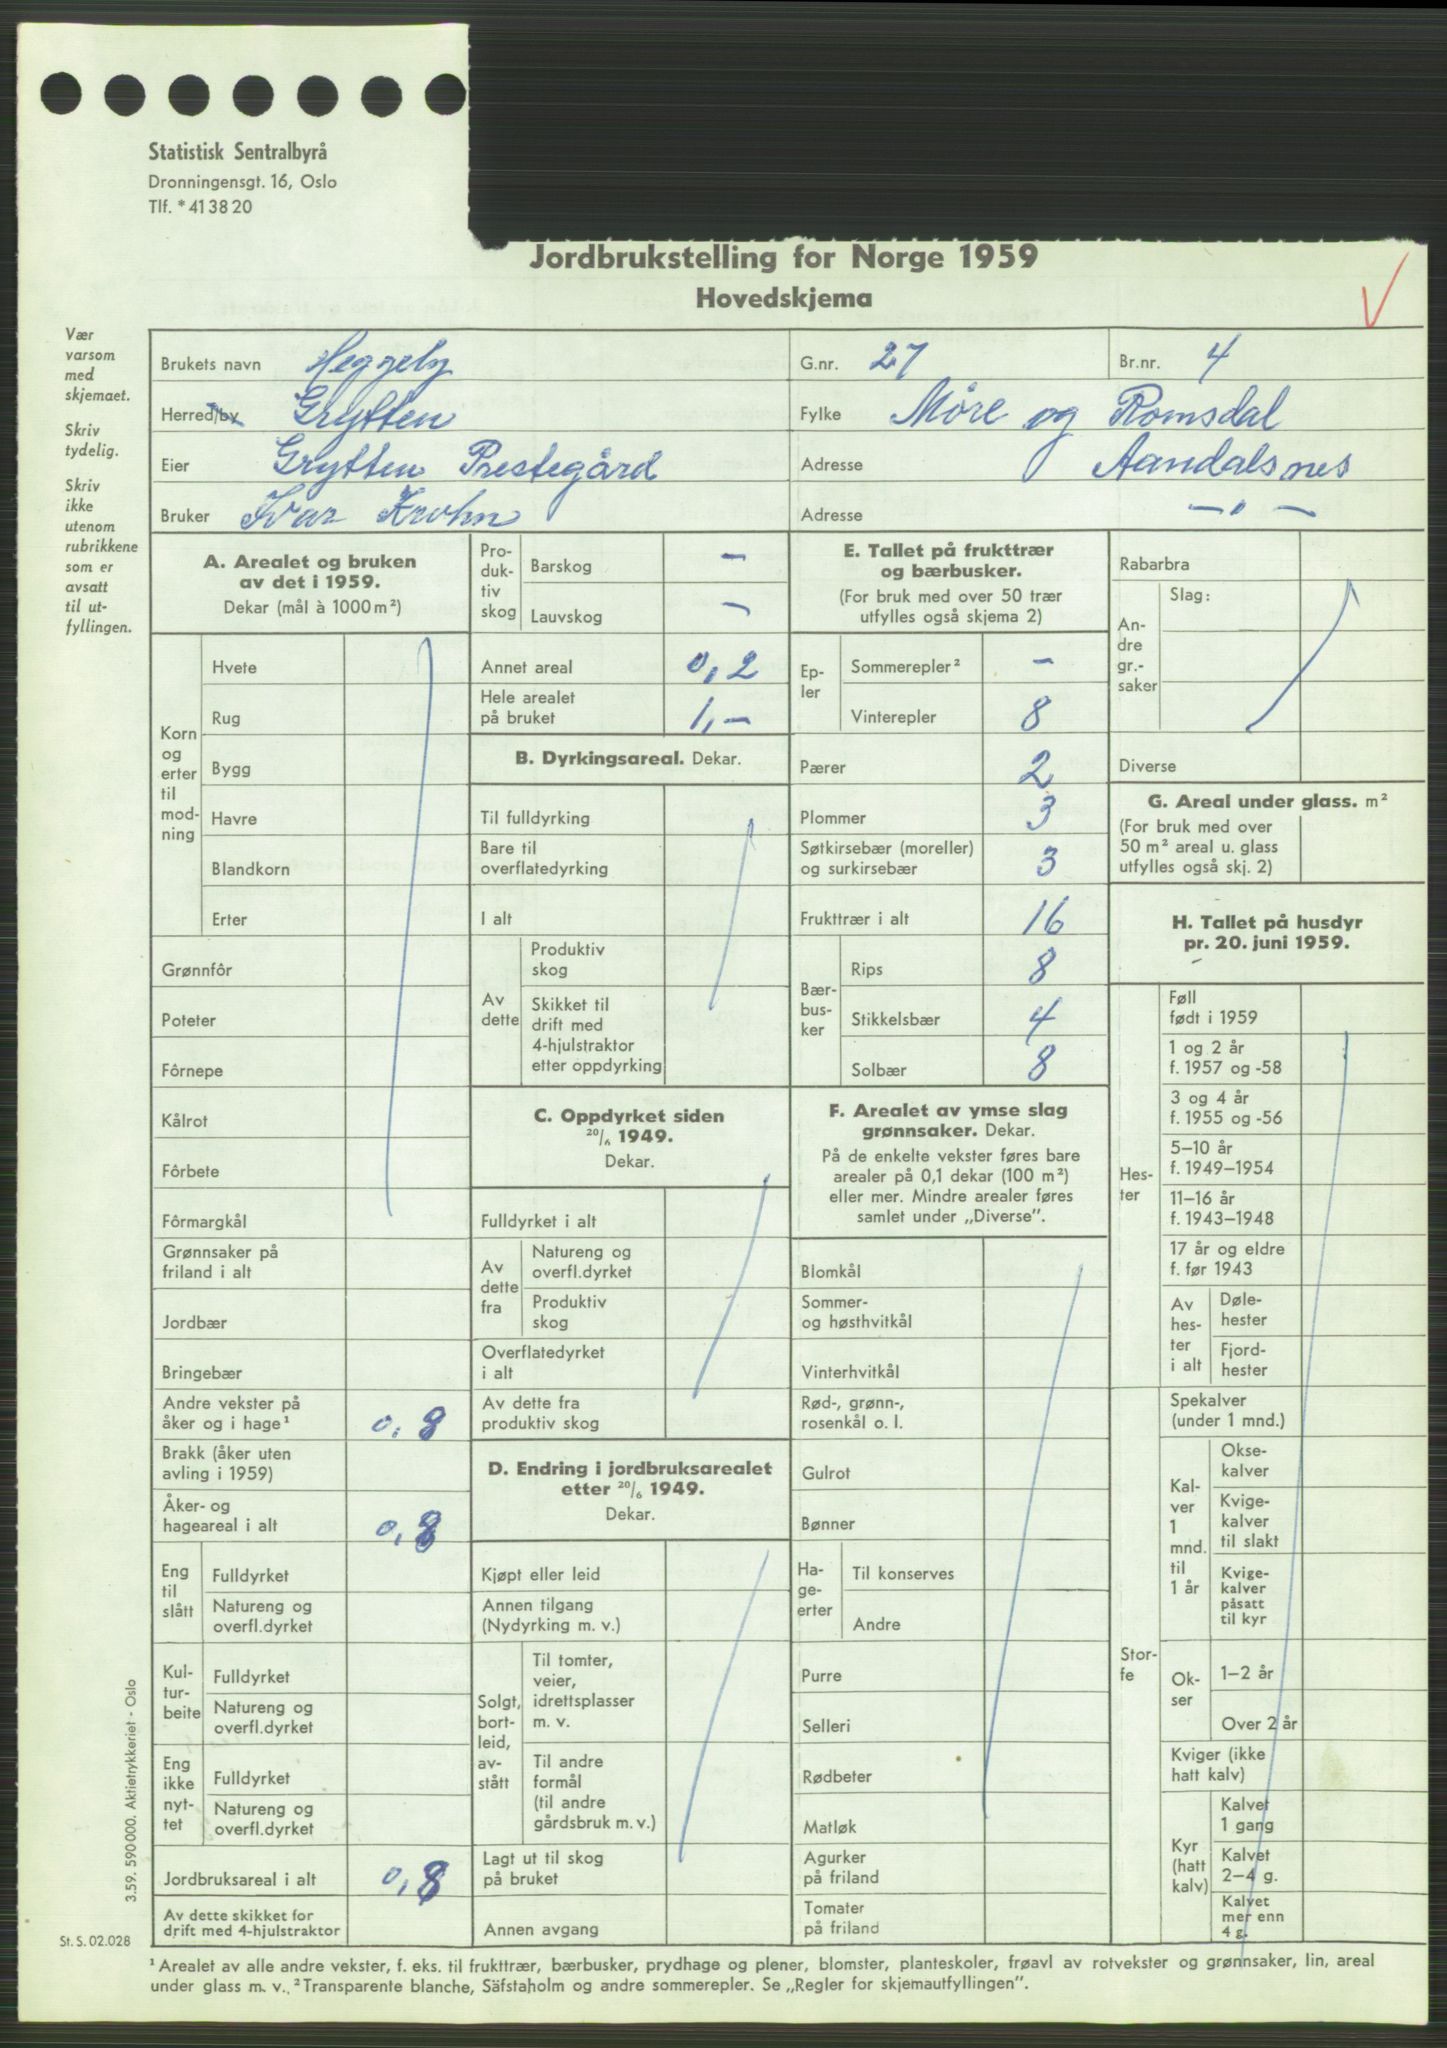 Statistisk Sentralbyrå
Dronningensgt. 16, Oslo
Tlf. *41 38 20
Jordbrukstelling for Norge 1959
Hovedskjema
Vær
varsom
med
skjemaet.
Skriv
tydelig.
Skriv
ikke
utenom
rubrikkene
som er
avsatt
til ut-
fyllingen.
Brukets navn Heggeby G.nr. 27 Br.nr. 4
Herred/by Grytten Fylke Möre og Romsdal
Eier Grytten Prestegård Adresse Aandalsnes
Bruker Ivar Krohn Adresse —"—
A. Arealet og bruken
av det i 1959.
Dekar (mål à 1000 m²)
Korn
og
erter
til
mod-
ning
Hvete
Rug
Bygg
Havre
Blandkorn
Erter
Grønnfôr
Poteter
Fôrnepe
Kålrot
Fôrbete
Fôrmargkål
Grønnsaker på
friland i alt
Jordbær
Bringebær
Andre vekster på
åker og i hage¹ 0,8
Brakk (åker uten
avling i 1959)
Åker- og
hageareal i alt 0,8
Eng
til
slått
Fulldyrket
Natureng og
overfl.dyrket
Kul-
tur-
beite
Fulldyrket
Natureng og
overfl.dyrket
Eng
ikke
nyt-
tet
Fulldyrket
Natureng og
overfl.dyrket
Jordbruksareal i alt 0,8
Av dette skikket for
drift med 4-hjulstraktor
Pro-
duk-
tiv
skog
Barskog —
Lauvskog —
Annet areal 0,2
Hele arealet
på bruket 1,—
B. Dyrkingsareal. Dekar.
Til fulldyrking
Bare til
overflatedyrking
I alt
Av
dette
Produktiv
skog
Skikket til
drift med
4-hjulstraktor
etter oppdyrking
C. Oppdyrket siden
20/6 1949.
Dekar.
Fulldyrket i alt
Av
dette
fra
Natureng og
overfl.dyrket
Produktiv
skog
Overflatedyrket
i alt
Av dette fra
produktiv skog
D. Endring i jordbruksarealet
etter 20/6 1949.
Dekar.
Kjøpt eller leid
Annen tilgang
(Nydyrking m. v.)
Solgt,
bort-
leid,
av-
stått
Til tomter,
veier,
idrettsplasser
m. v.
Til andre
formål
(til andre
gårdsbruk m. v.)
Lagt ut til skog
på bruket
Annen avgang
E. Tallet på frukttrær
og bærbusker.
(For bruk med over 50 trær
utfylles også skjema 2)
Ep-
ler
Sommerepler² —
Vinterepler 8
Pærer 2
Plommer 3
Søtkirsebær (moreller)
og surkirsebær 3
Frukttrær i alt 16
Bær-
bus-
ker
Rips 8
Stikkelsbær 4
Solbær 8
F. Arealet av ymse slag
grønnsaker. Dekar.
På de enkelte vekster føres bare
arealer på 0,1 dekar (100 m²)
eller mer. Mindre arealer føres
samlet under „Diverse”.
Blomkål
Sommer-
og høsthvitkål
Vinterhvitkål
Rød-, grønn-,
rosenkål o. l.
Gulrot
Bønner
Ha-
ge-
erter
Til konserves
Andre
Purre
Selleri
Rødbeter
Matløk
Agurker
på friland
Tomater
på friland
Rabarbra
An-
dre
gr.-
saker
Slag:
Diverse
G. Areal under glass. m²
(For bruk med over
50 m² areal u. glass
utfylles også skj. 2)
H. Tallet på husdyr
pr. 20. juni 1959.
Hes-
ter
Føll
født i 1959
1 og 2 år
f. 1957 og -58
3 og 4 år
f. 1955 og -56
5–10 år
f. 1949–1954
11–16 år
f. 1943–1948
17 år og eldre
f. før 1943
Av
hes-
ter
i alt
Døle-
hester
Fjord-
hester
Stor-
fe
Spekalver
(under 1 mnd.)
Kal-
ver
1
mnd.
til
1 år
Okse-
kalver
Kvige-
kalver
til slakt
Kvige-
kalver
påsatt
til kyr
Ok-
ser
1–2 år
Over 2 år
Kviger (ikke
hatt kalv)
Kyr
(hatt
kalv)
Kalvet
1 gang
Kalvet
2–4 g.
Kalvet
mer enn
4 g.
3.59. 590 000. Aktietrykkeriet - Oslo
St. S. 02.028
¹ Arealet av alle andre vekster, f. eks. til frukttrær, bærbusker, prydhage og plener, blomster, planteskoler, frøavl av rotvekster og grønnsaker, lin, areal
under glass m. v. ² Transparente blanche, Säfstaholm og andre sommerepler. Se „Regler for skjemautfyllingen”.